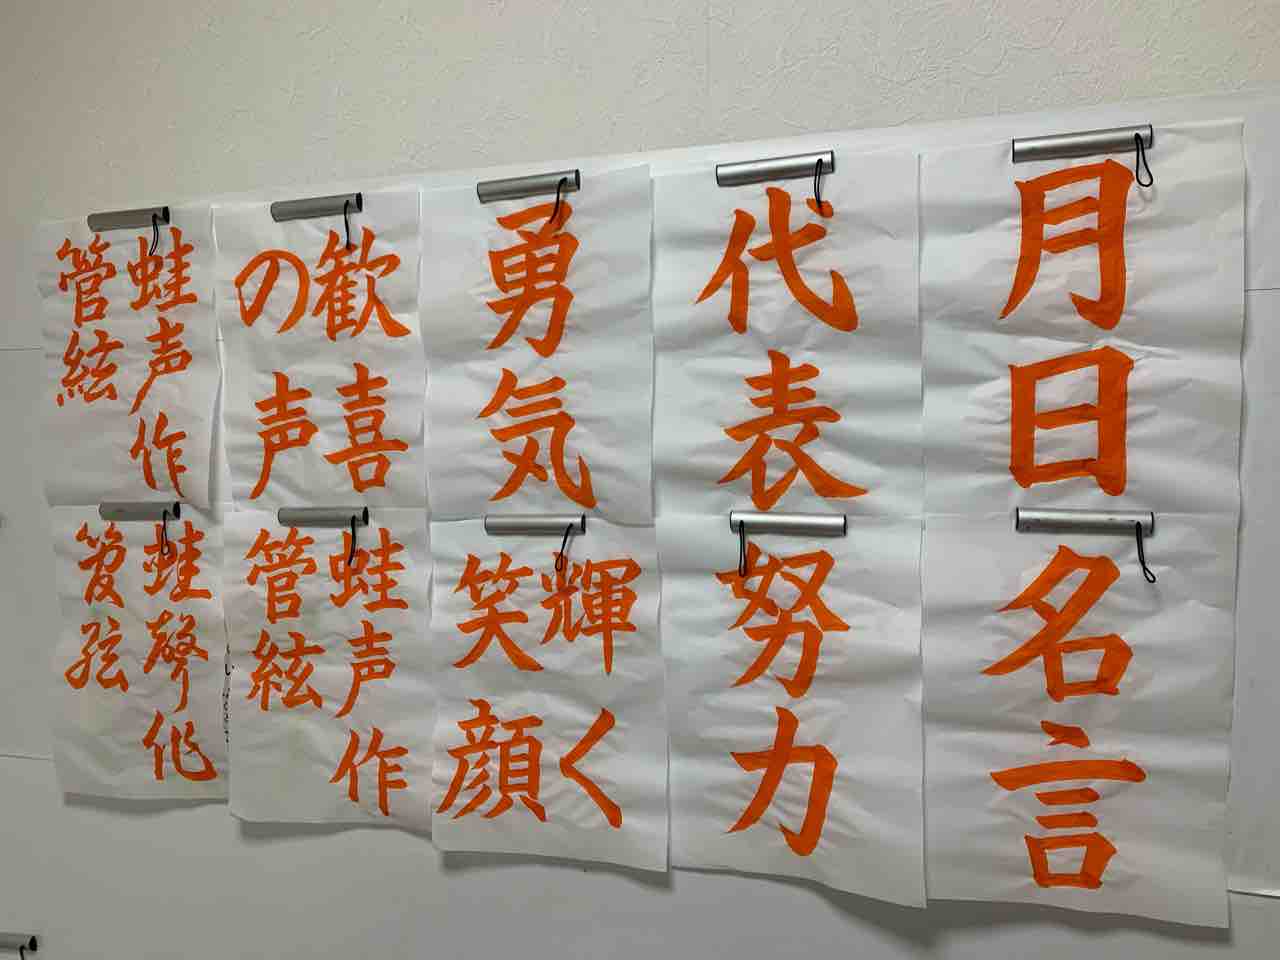 月日
代表
勇気
歓喜
の声
蛙声作
管絃
名言
努力
輝く
笑顔
蛙声作
管絃
蛙聲作
管弦